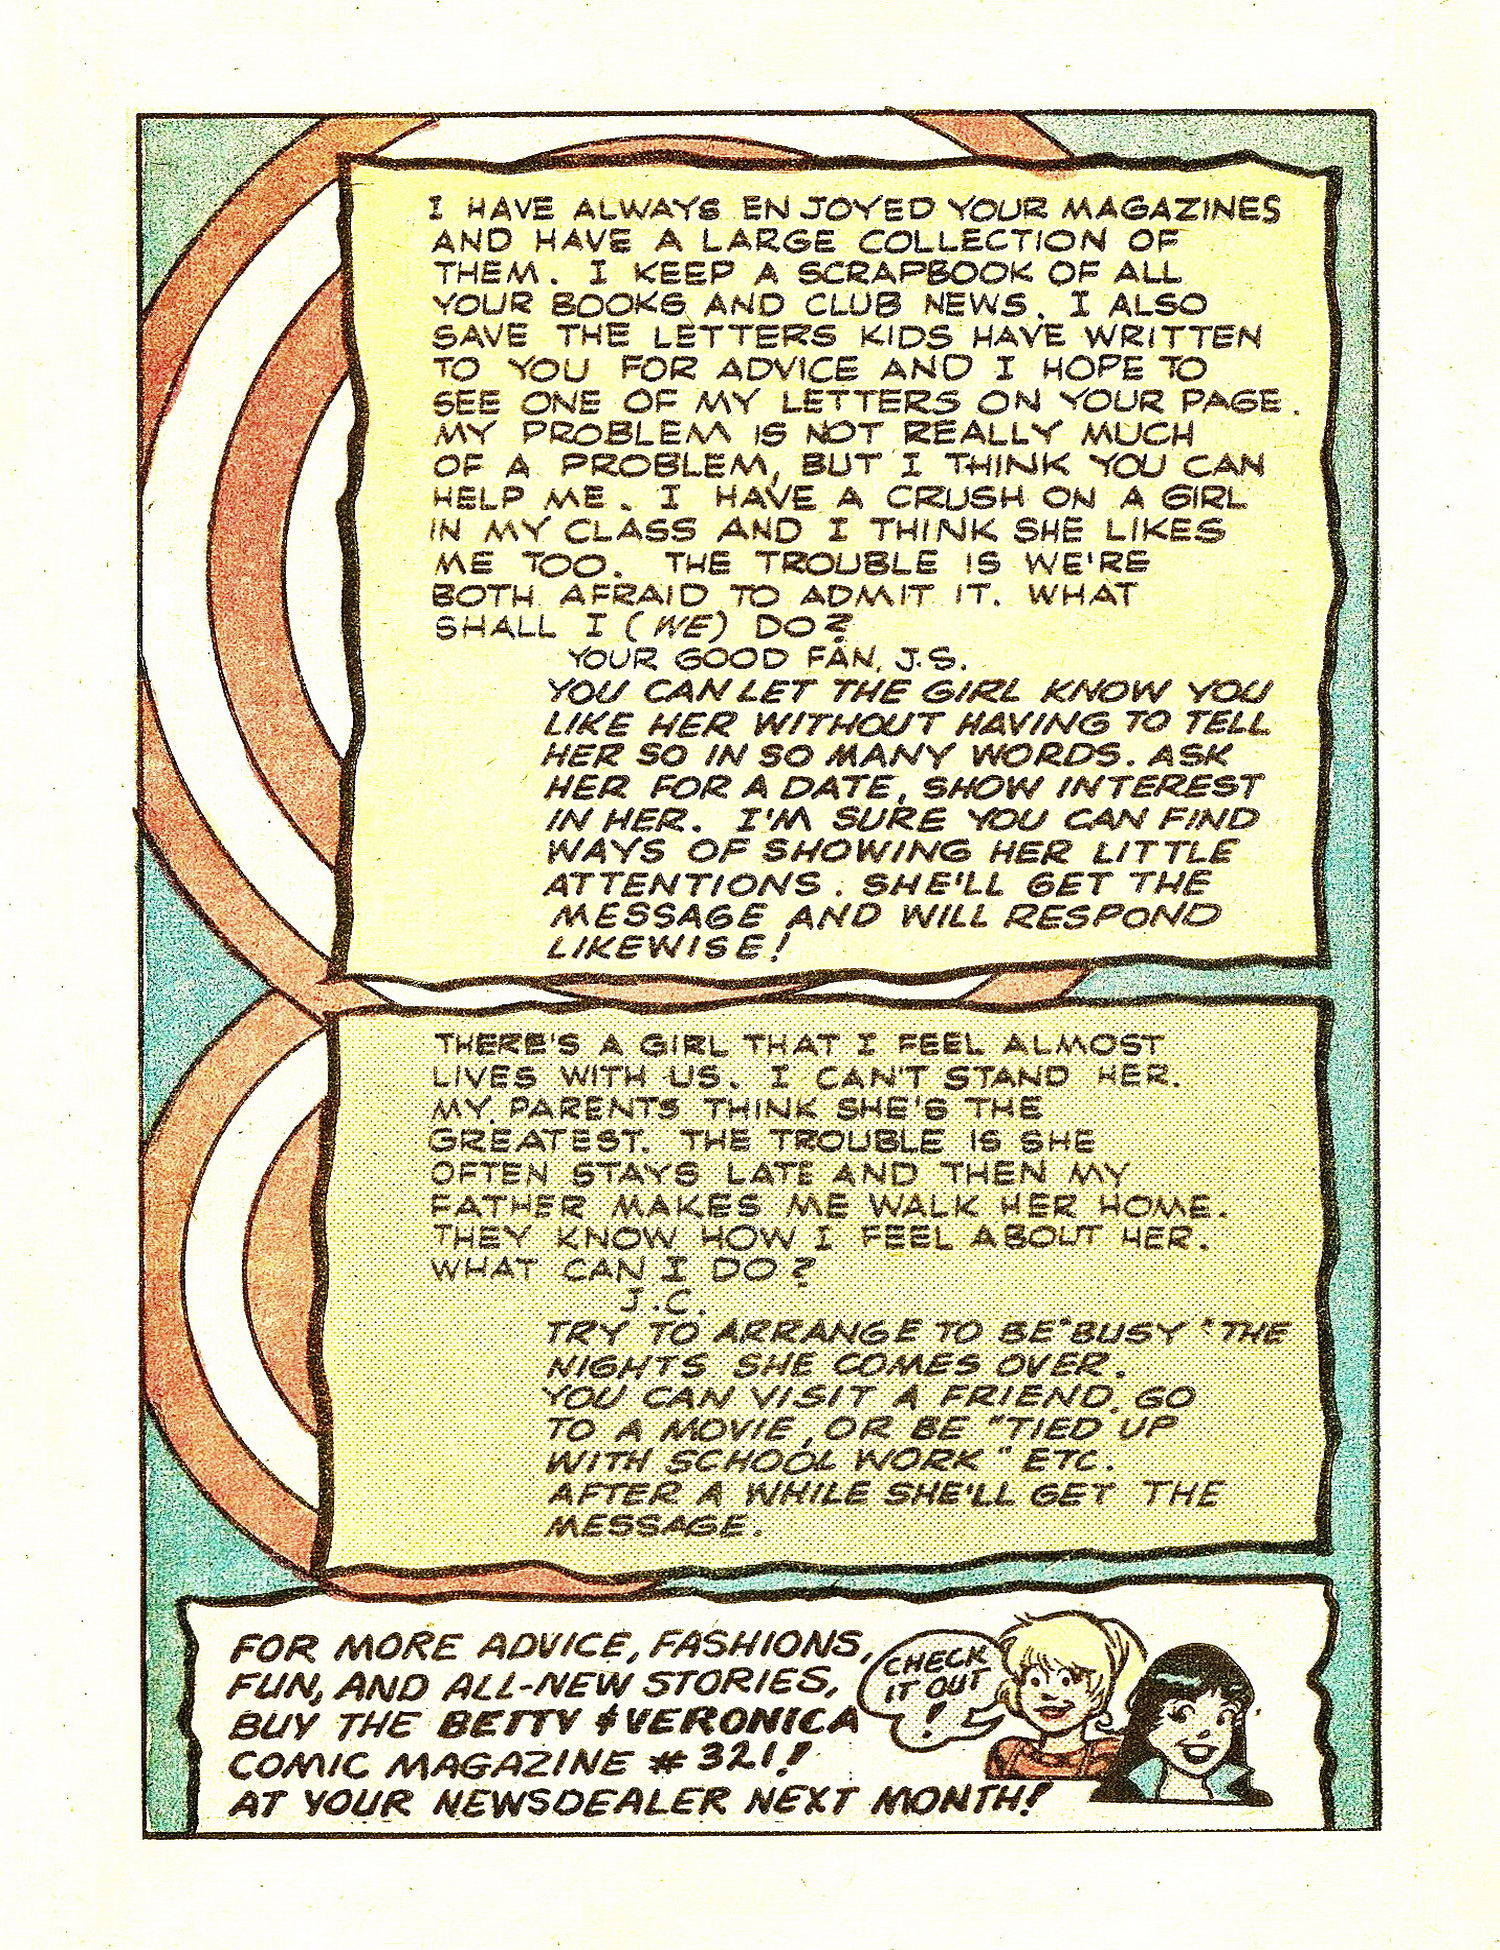 I HAVE ALWAYS ENJOYED YOUR MAGAZINES
AND HAVE A LARGE COLLECTION OF
THEM. I KEEP A SCRAPBOOK OF ALL
YOUR BOOKS AND CLUB NEWS. I ALSO
SAVE THE LETTERS KIDS HAVE WRITTEN
TO YOU FOR ADVICE AND I HOPE TO
SEE ONE OF MY LETTERS ON YOUR PAGE.
MY PROBLEM IS NOT REALLY MUCH
OF A PROBLEM, BUT I THINK YOU CAN
HELP ME. I HAVE A CRUSH ON A GIRL
IN MY CLASS AND I THINK SHE LIKES
ME TOO. THE TROUBLE IS WE'RE
BOTH AFRAID TO ADMIT IT. WHAT
SHALL I (WE) DO?
YOUR GOOD FAN, J.S.
YOU CAN LET THE GIRL KNOW YOU
LIKE HER WITHOUT HAVING TO TELL
HER SO IN SO MANY WORDS. ASK
HER FOR A DATE, SHOW INTEREST
IN HER. I'M SURE YOU CAN FIND
WAYS OF SHOWING HER LITTLE
ATTENTIONS. SHE'LL GET THE
MESSAGE AND WILL RESPOND
LIKEWISE!
THERE'S A GIRL THAT I FEEL ALMOST
LIVES WITH US. I CAN'T STAND HER.
MY PARENTS THINK SHE'S THE
GREATEST. THE TROUBLE IS SHE
OFTEN STAYS LATE AND THEN MY
FATHER MAKES ME WALK HER HOME.
THEY KNOW HOW I FEEL ABOUT HER.
WHAT CAN I DO?
J.C.
TRY TO ARRANGE TO BE "BUSY" THE
NIGHTS SHE COMES OVER.
YOU CAN VISIT A FRIEND, GO
TO A MOVIE, OR BE "TIED UP
WITH SCHOOL WORK" ETC.
AFTER A WHILE SHE'LL GET THE
MESSAGE.
FOR MORE ADVICE, FASHIONS,
FUN, AND ALL-NEW STORIES,
BUY THE BETTY & VERONICA
COMIC MAGAZINE #321!
AT YOUR NEWSDEALER NEXT MONTH!
CHECK
IT OUT
!